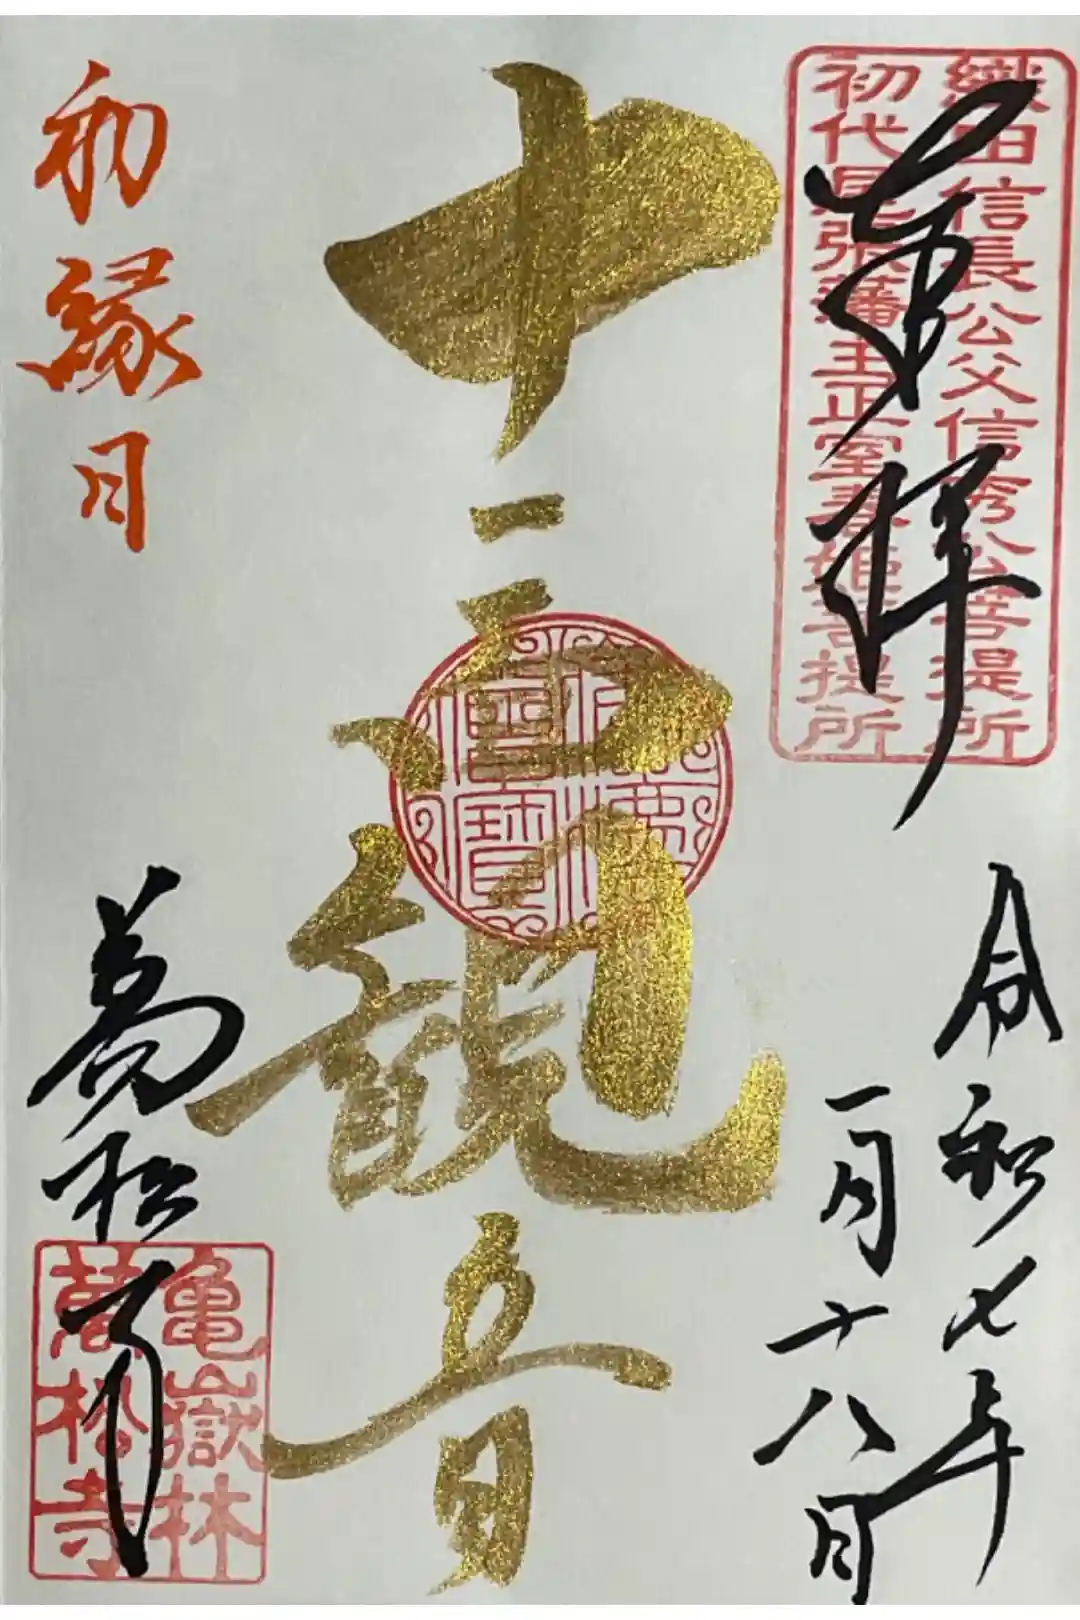 織田信長公父信秀公菩提所
初代尾張藩主正室春姫菩提所
奉拝
令和七年
一月十八日
十一面観音
佛法
僧寶
初縁日
萬松寺
亀嶽林
萬松寺